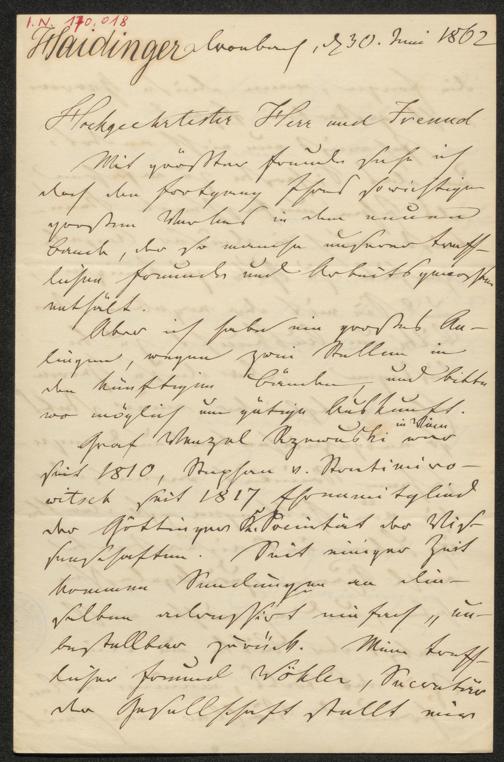 I.N. 170.018
Haidinger
Dornbach, d 30. Juni 1862
Hochgeehrtester Herr und Freund
Mit größter Freude sehe ich
doch den Fortgang Ihres so wichtigen
großen Werkes in dem neuen
Bande, der so manche unserer treff-
lichen Freunde und Arbeitsgenossen
enthält.
Aber ich habe ein großes An-
liegen, wegen zwei Stellen in
den künftigen Bänden, und bitte
wo möglich um gütige Auskunft.
Graf Wenzel Rzewuski in Wien war
seit 1810, Stephan v. Stratimiro-
witsch seit 1817 Ehrenmitglied
der Göttinger K. Societät der Wis-
senschaften. Seit einiger Zeit
kommen Sendungen an die-
selben adressirt einfach „un-
bestellbar zurück. Mein treff-
licher Freund Wöhler, Secretär
der Gesellschaft stellt mir